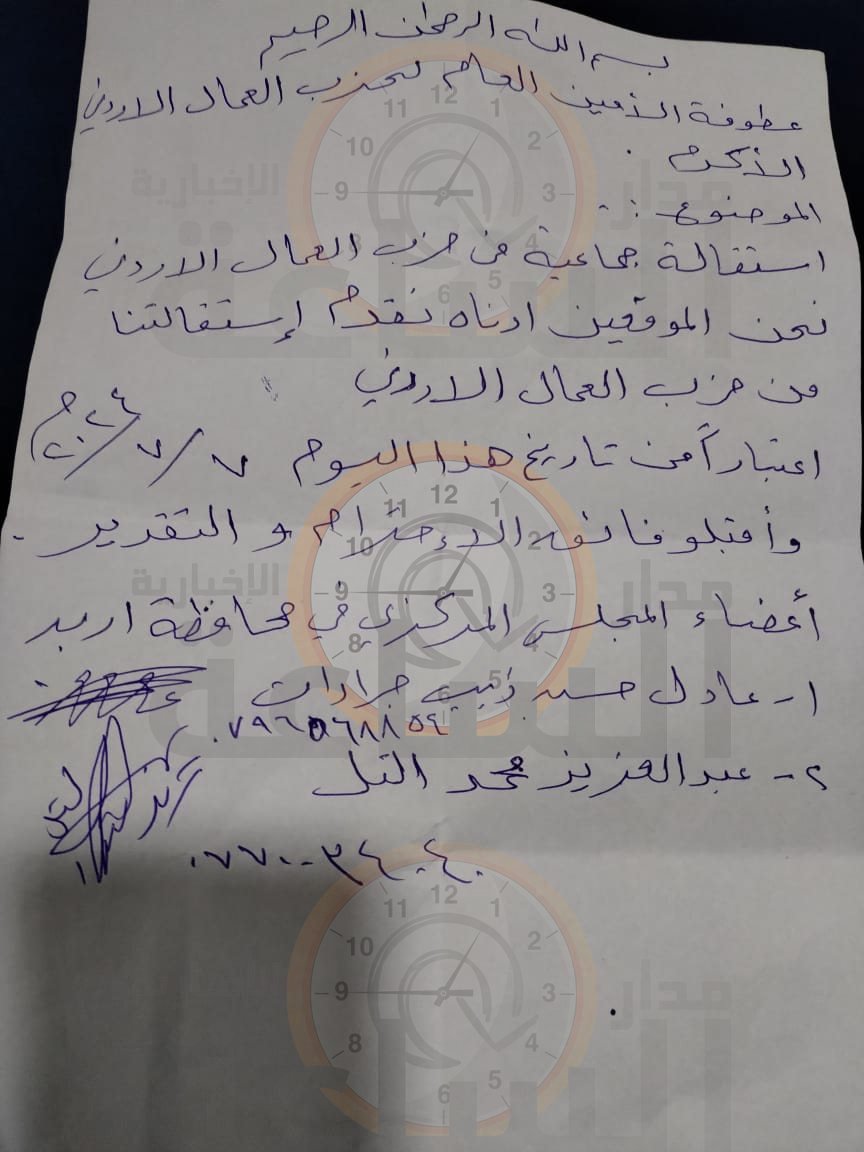 بسم الله الرحمن الرحيم
عطوفة الأمين العام لحزب العمال الاردني
الأكرم .
الموضوع :
استقالة جماعية من حزب العمال الاردني
نحن الموقعين ادناه نقدم إستقالتنا
من حزب العمال الاردني
اعتباراً من تاريخ هذا اليوم ٧/٧/٢٠٢٤م
وأقبلو فائق الإحترام و التقدير .
أعضاء المجلس المركزي في محافظة اربد
١- عادل حسن ذيب جرادات
٠٧٩٦٥٦٨٨٥٤
٢- عبدالعزيز محمد التل
٠٧٧٠٠٣٤٠٤٠
مدار الساعة الإخبارية
مدار الساعة الإخبارية
مدار الساعة